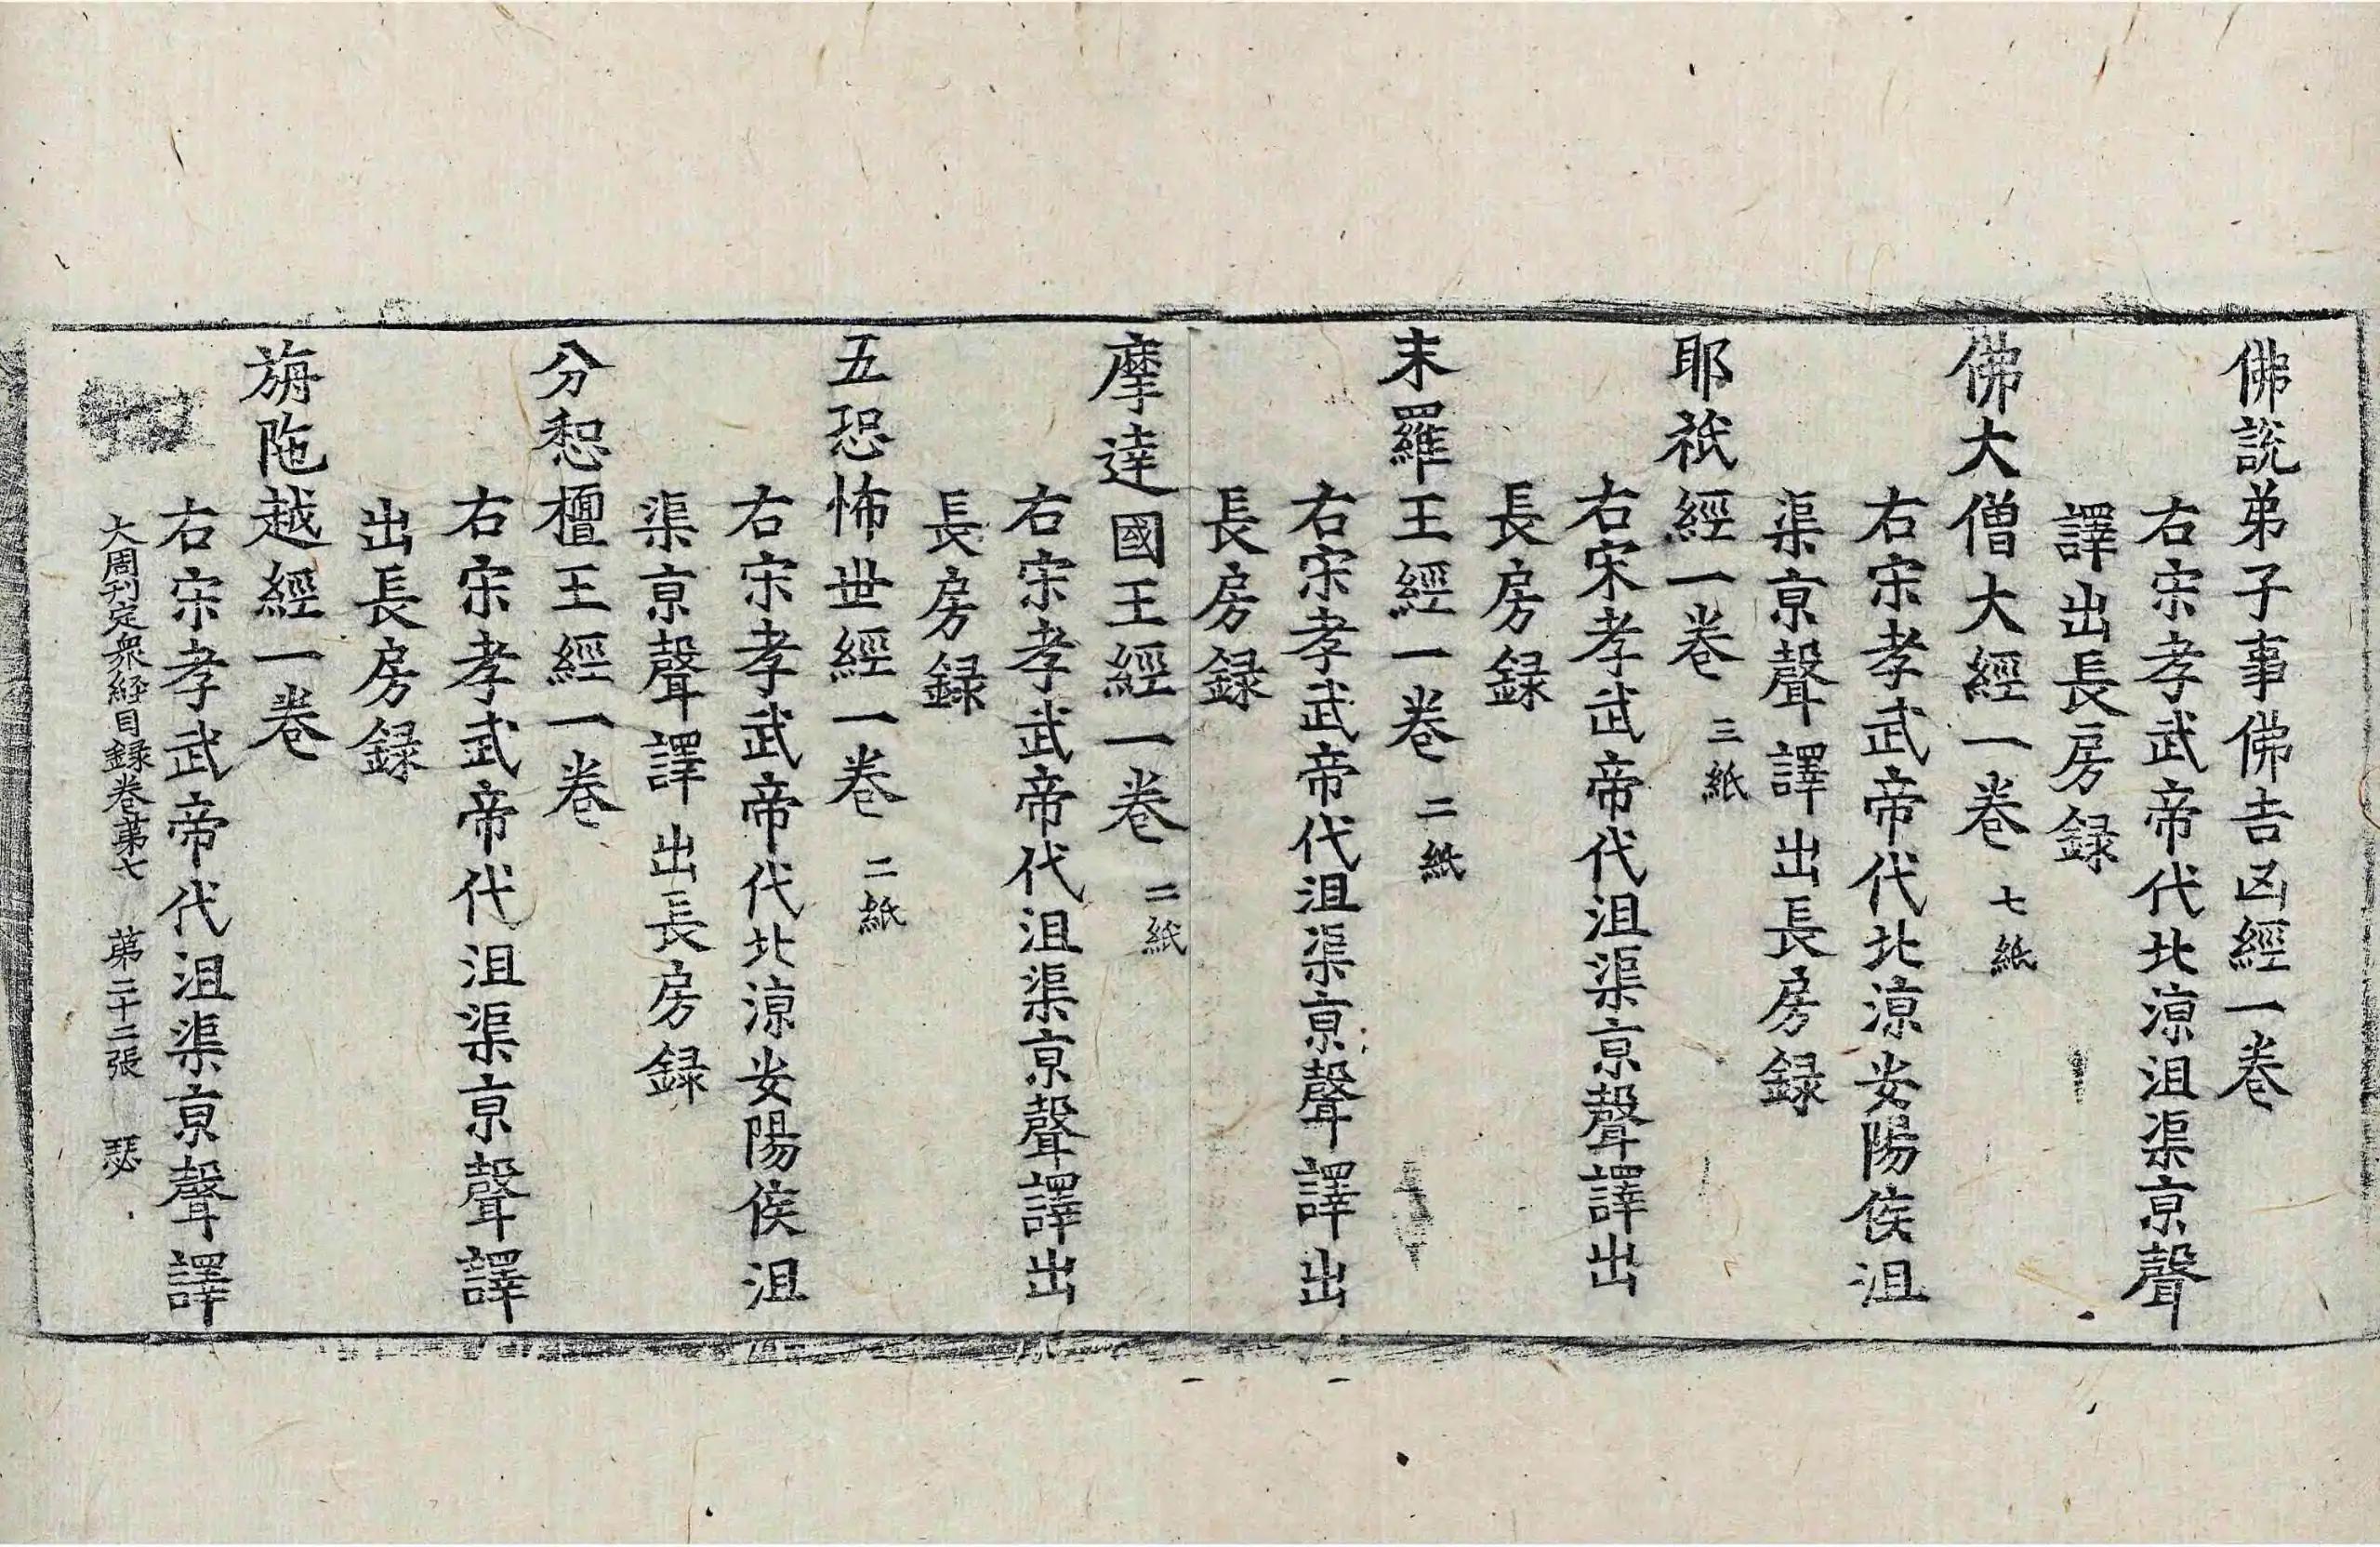 佛說弟子事佛吉凶經一卷
右宋孝武帝代北涼沮渠京聲
譯出長房録
佛大僧大經一卷 七紙
右宋孝武帝代北涼安陽侯沮
渠京聲譯出長房録
耶祇經一卷 三紙
右宋孝武帝代沮渠京聲譯出
長房録
末羅王經一卷 二紙
右宋孝武帝代沮渠京聲譯出
長房録
摩達國王經一卷 二紙
右宋孝武帝代沮渠京聲譯出
長房録
五恐怖世經一卷 二紙
右宋孝武帝代北涼安陽侯沮
渠京聲譯出長房録
分惒檀王經一卷
右宋孝武帝代沮渠京聲譯
出長房録
旃陁越經一卷
右宋孝武帝代沮渠京聲譯
大周刊定衆経目録卷苐七 苐二十二張 瑟